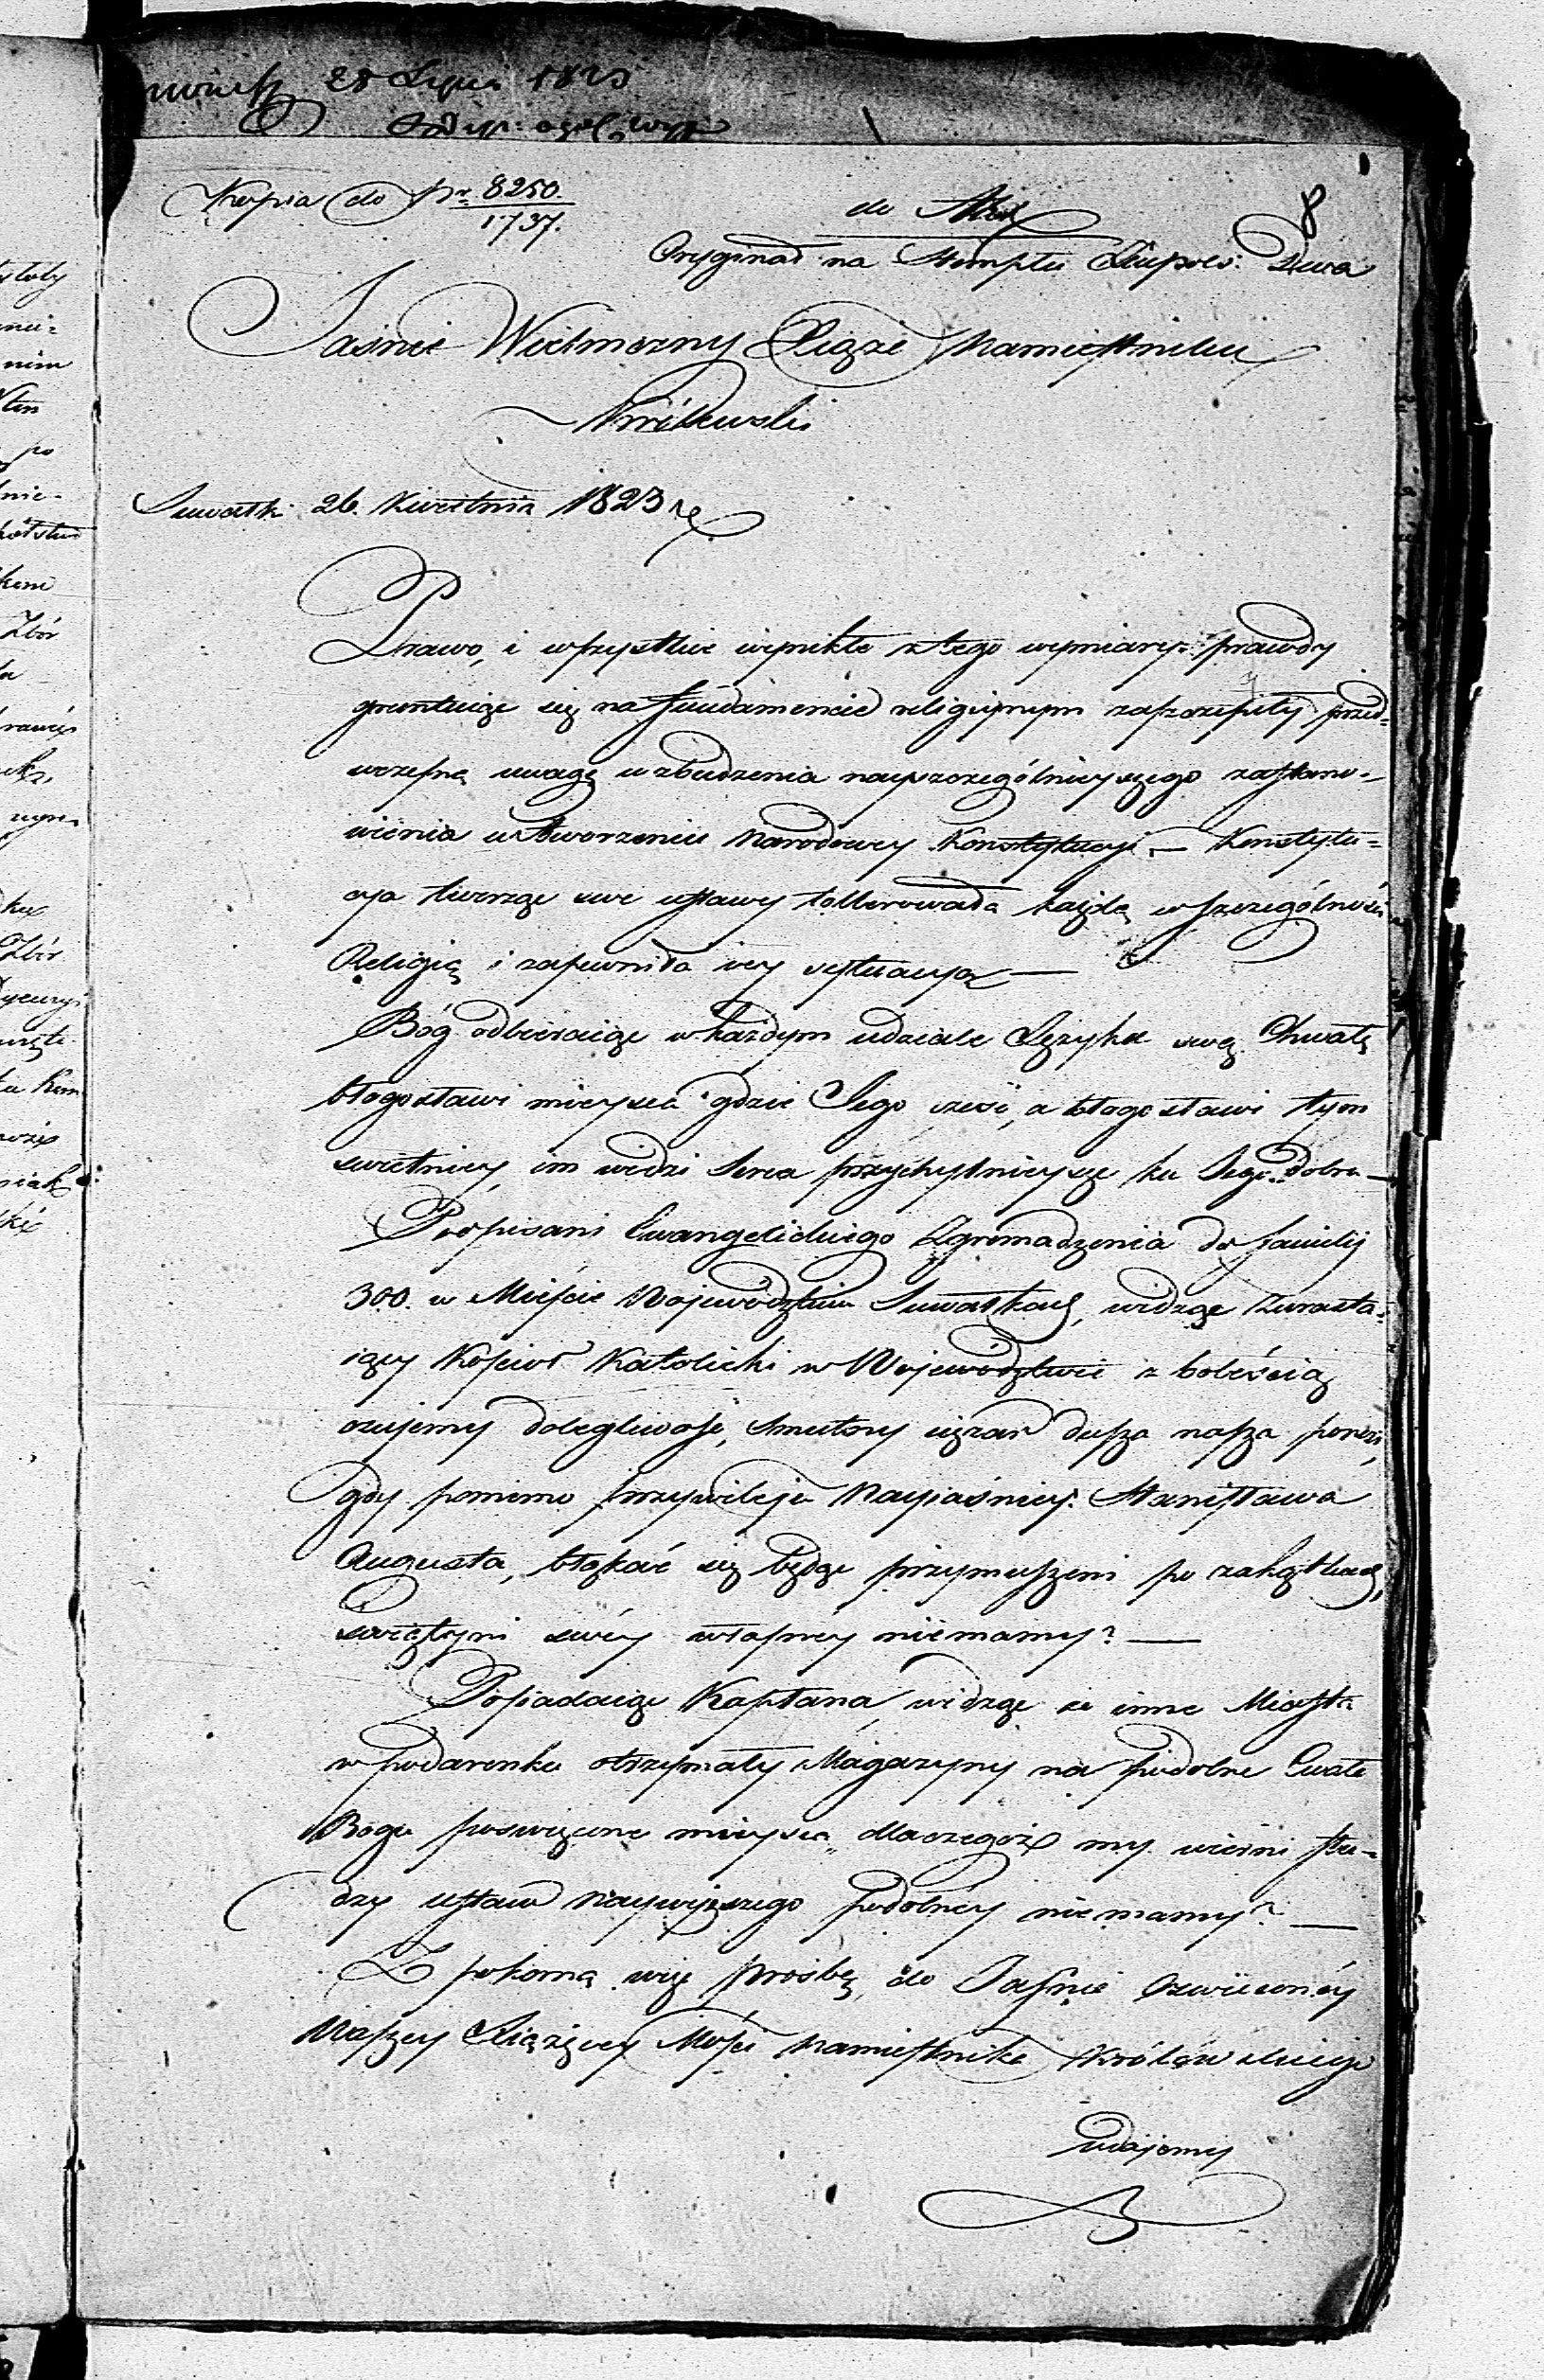 28 Lipca 1823
Kopia do Nr 8250.
1737.
do Akt
8
Oryginał na Stemplu Złupols: Dwa
Jaśnie Wielmożny Xiąże Namiestniku
Królewski
Suwałki 26. Kwietnia 1823 r.
Prawo, i wszystkie wynikłe z tego wymiary prawdy
gruntuiąc się na fundamencie religiynym zaszczepiły przed-
wczesną uwagę wzbudzenia nayszczególnieyszego zastano-
wienia w stworzeniu Narodowey Konstytucyi. — Konstytu-
cya tworząc swe ustawy tollerowała każdą w szczególności
Religią i zapewniła iey sytuacyą —
Bóg odbieraiąc w każdym udziale Języka swą Chwałę
błogosławi mieysca gdzie Jego cześć, a błogosławi tym
świetniey, im widzi Serca przychylnieysze ku Jego dobra —
Podpisani Ewangelickiego Zgromadzenia do familij
300. w Mieście Wojewódzkim Suwałkach, widząc Zwrasta-
iący Kościoł Katolicki w Wojewódzkwie z boleścią
czujemy dolegliwość, Smutny ciężar dusza nasza ponosi,
gdy pomimo przywileju Nayiaśniey: Stanisława
Augusta, błąkać się będąc przymuszeni po zakątkach,
Swiątyni swéy własney niemamy? —
Posiadaiąc Kapłana, widząc że inne Miasta
w podarunku otrzymały Magazyny na podobne Chwale
Bogu poswięcone mieysca, dlaczegóż my wierni słu-
dzy ustaw Naywyższego podobnéy nie mamy? —
Z pokorną więc prośbą, do Jaśnie Oświeconéy
Waszey Xiążęcey Mości Namiestnika Królewskiego
udajemy